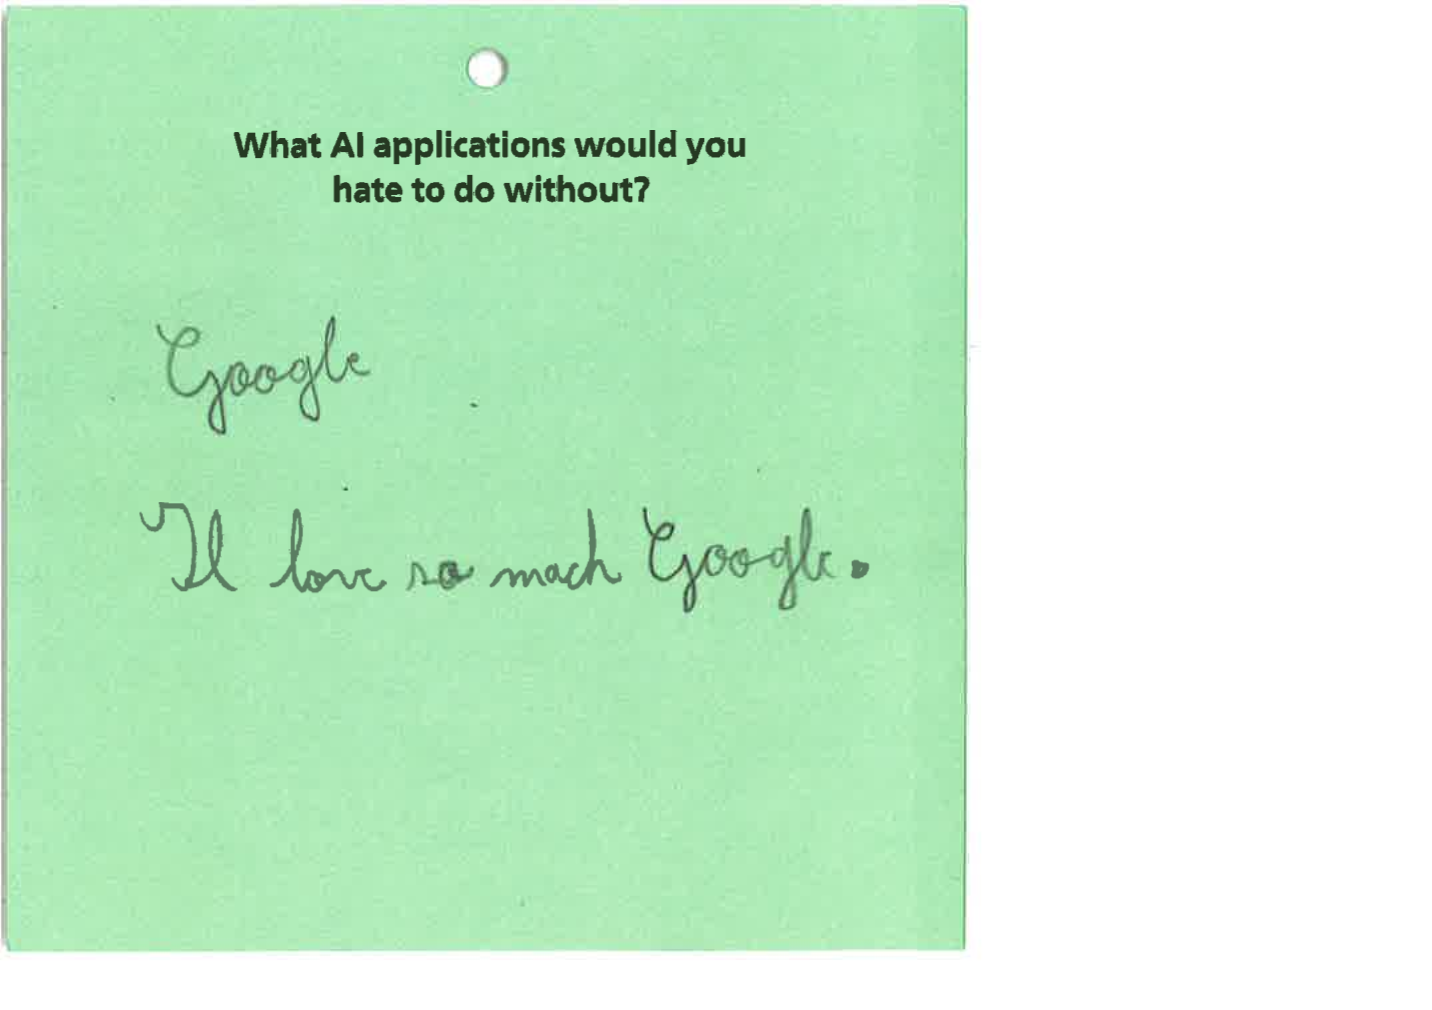 What AI applications would you
hate to do without?
Google
Il love so mach Google.